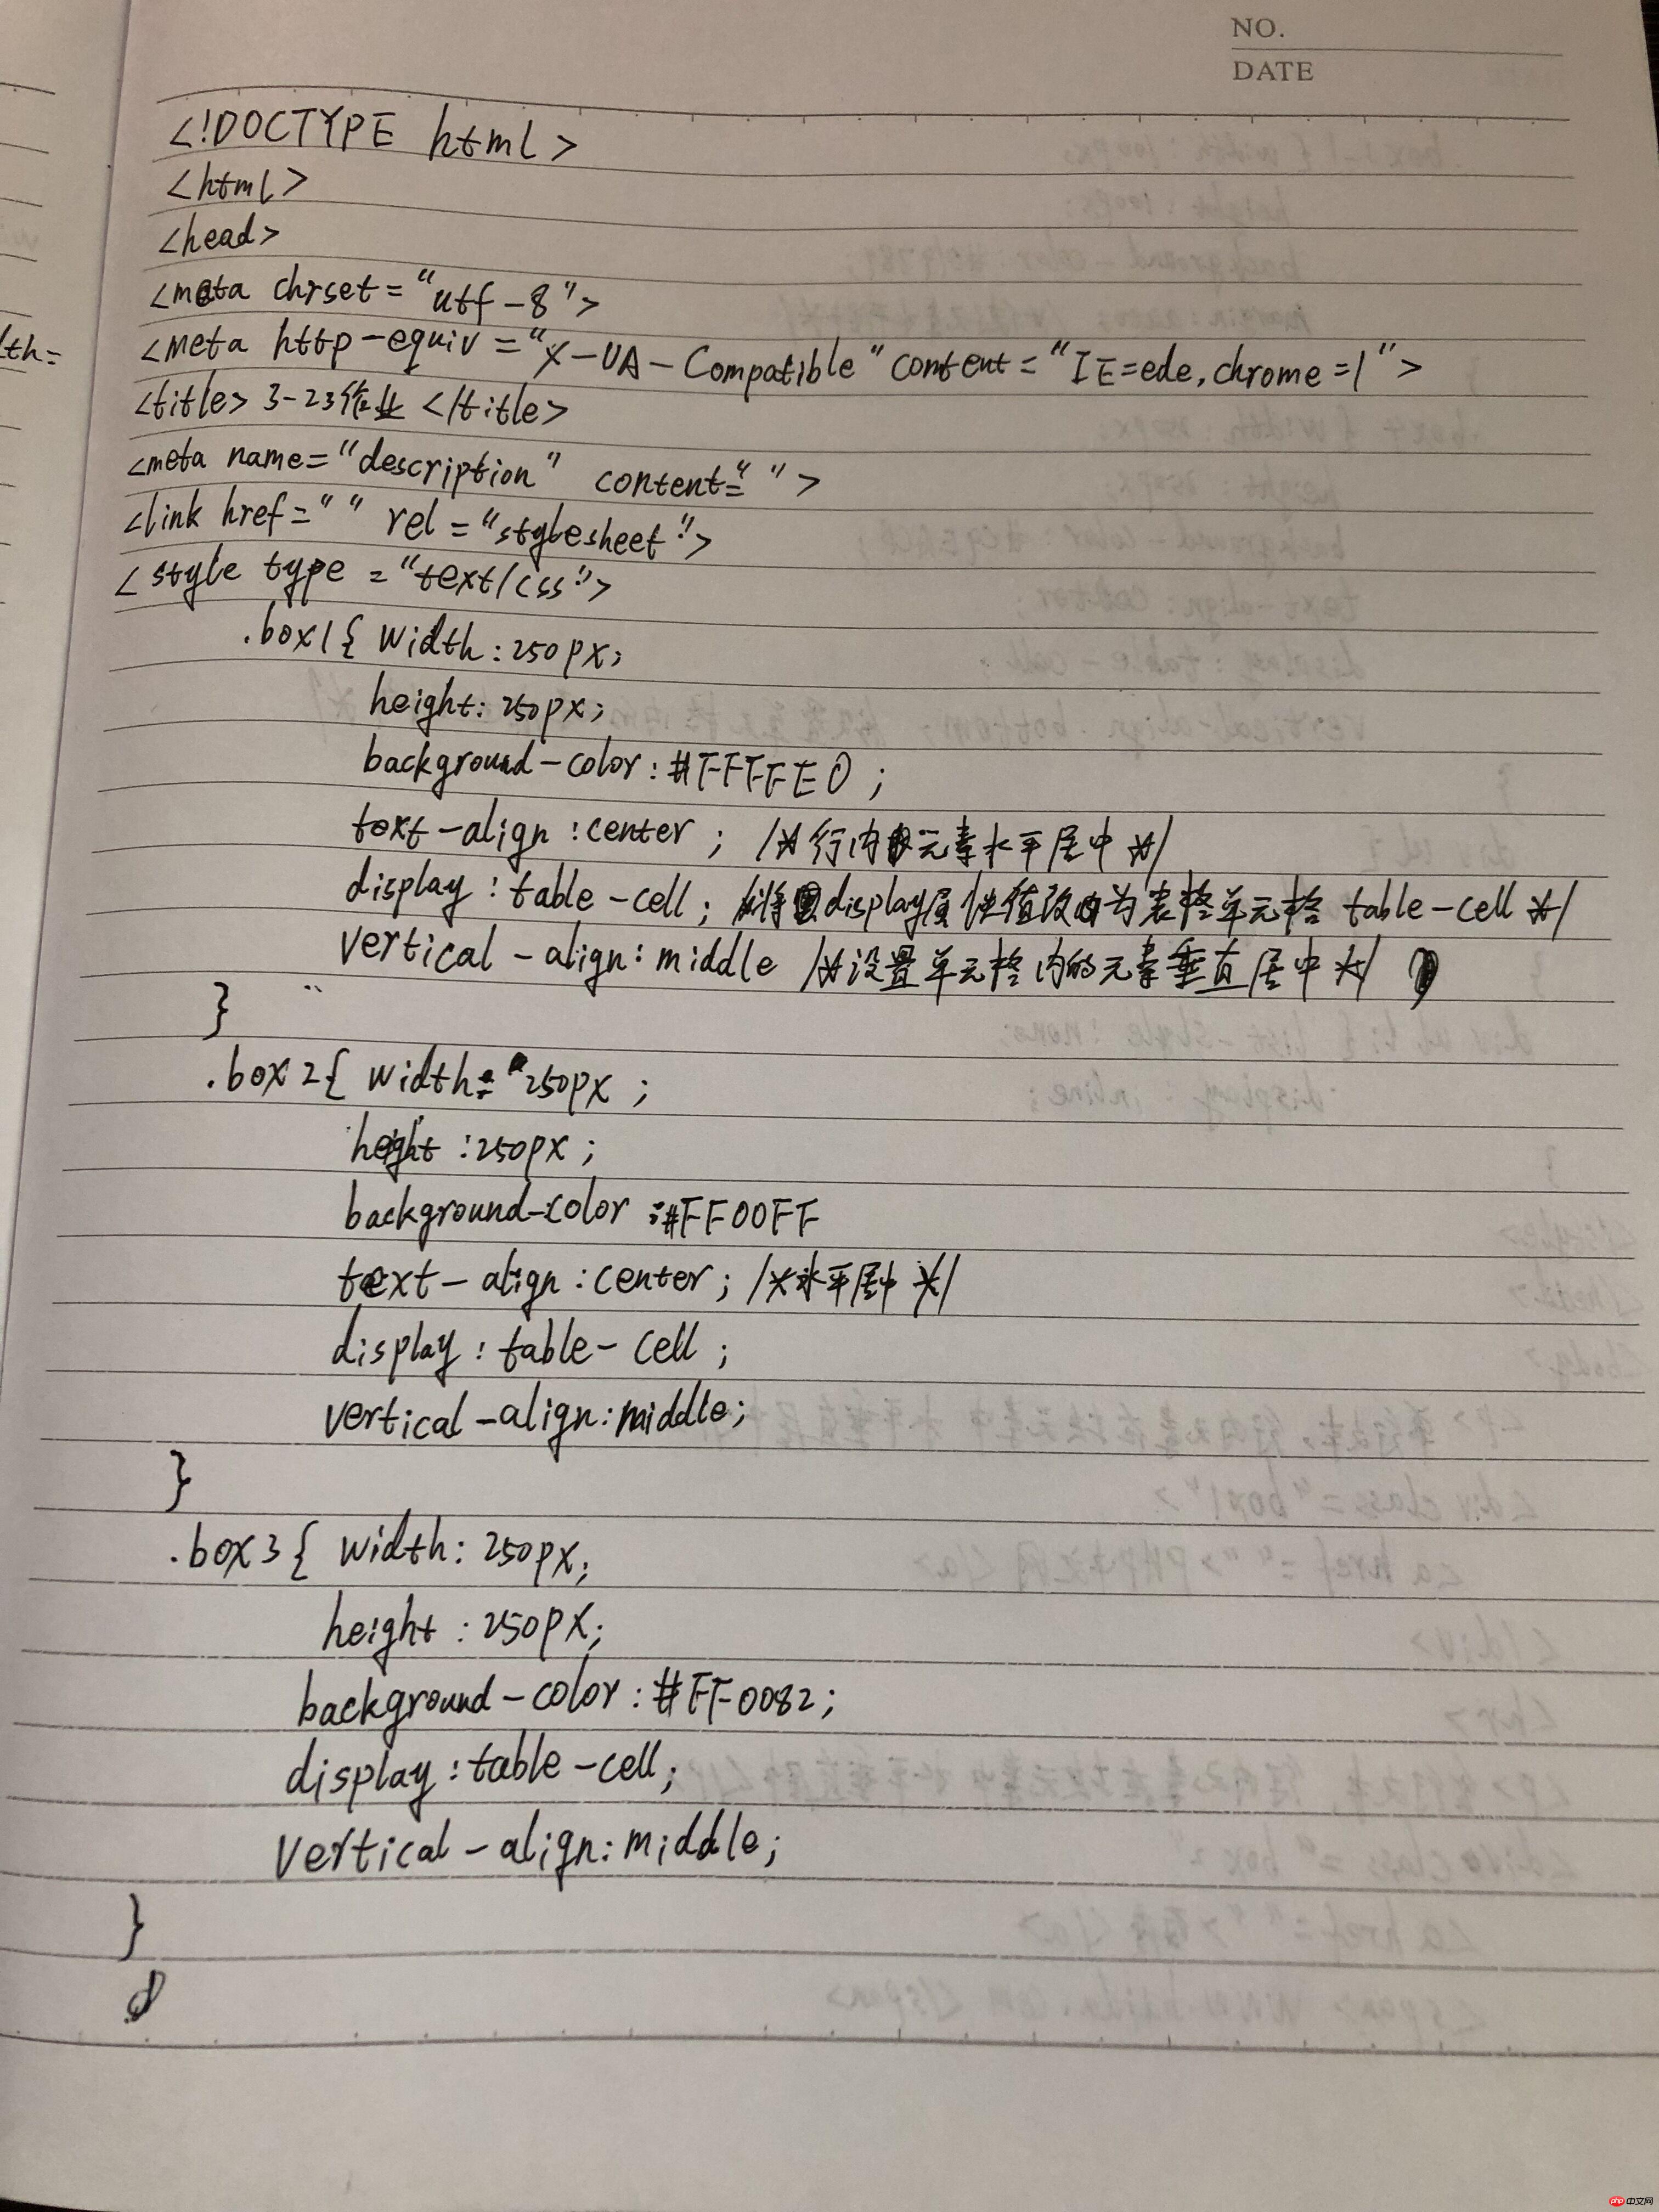 NO.
DATE
<!DOCTYPE html>
<html>
<head>
<meta chrset="utf-8">
<meta http-equiv="X-UA-Compatible" content="IE=ede,chrome=1">
<title>3-23作业</title>
<meta name="description" content=" ">
<link href=" " rel="stylesheet">
<style type="text/css">
.box1{ width:250px;
height:250px;
background-color:#FFFFE0;
text-align:center; /*行内元素水平居中*/
display:table-cell; /*将display属性值改为表格单元格 table-cell*/
vertical-align:middle /*设置单元格内的元素垂直居中*/
}
.box2{ width:250px;
height:250px;
background-color:#FF00FF
text-align:center; /*水平居中*/
display:table-cell;
vertical-align:middle;
}
.box3{ width:250px;
height:250px;
background-color:#FF0082;
display:table-cell;
vertical-align:middle;
}
th=
php 中文网